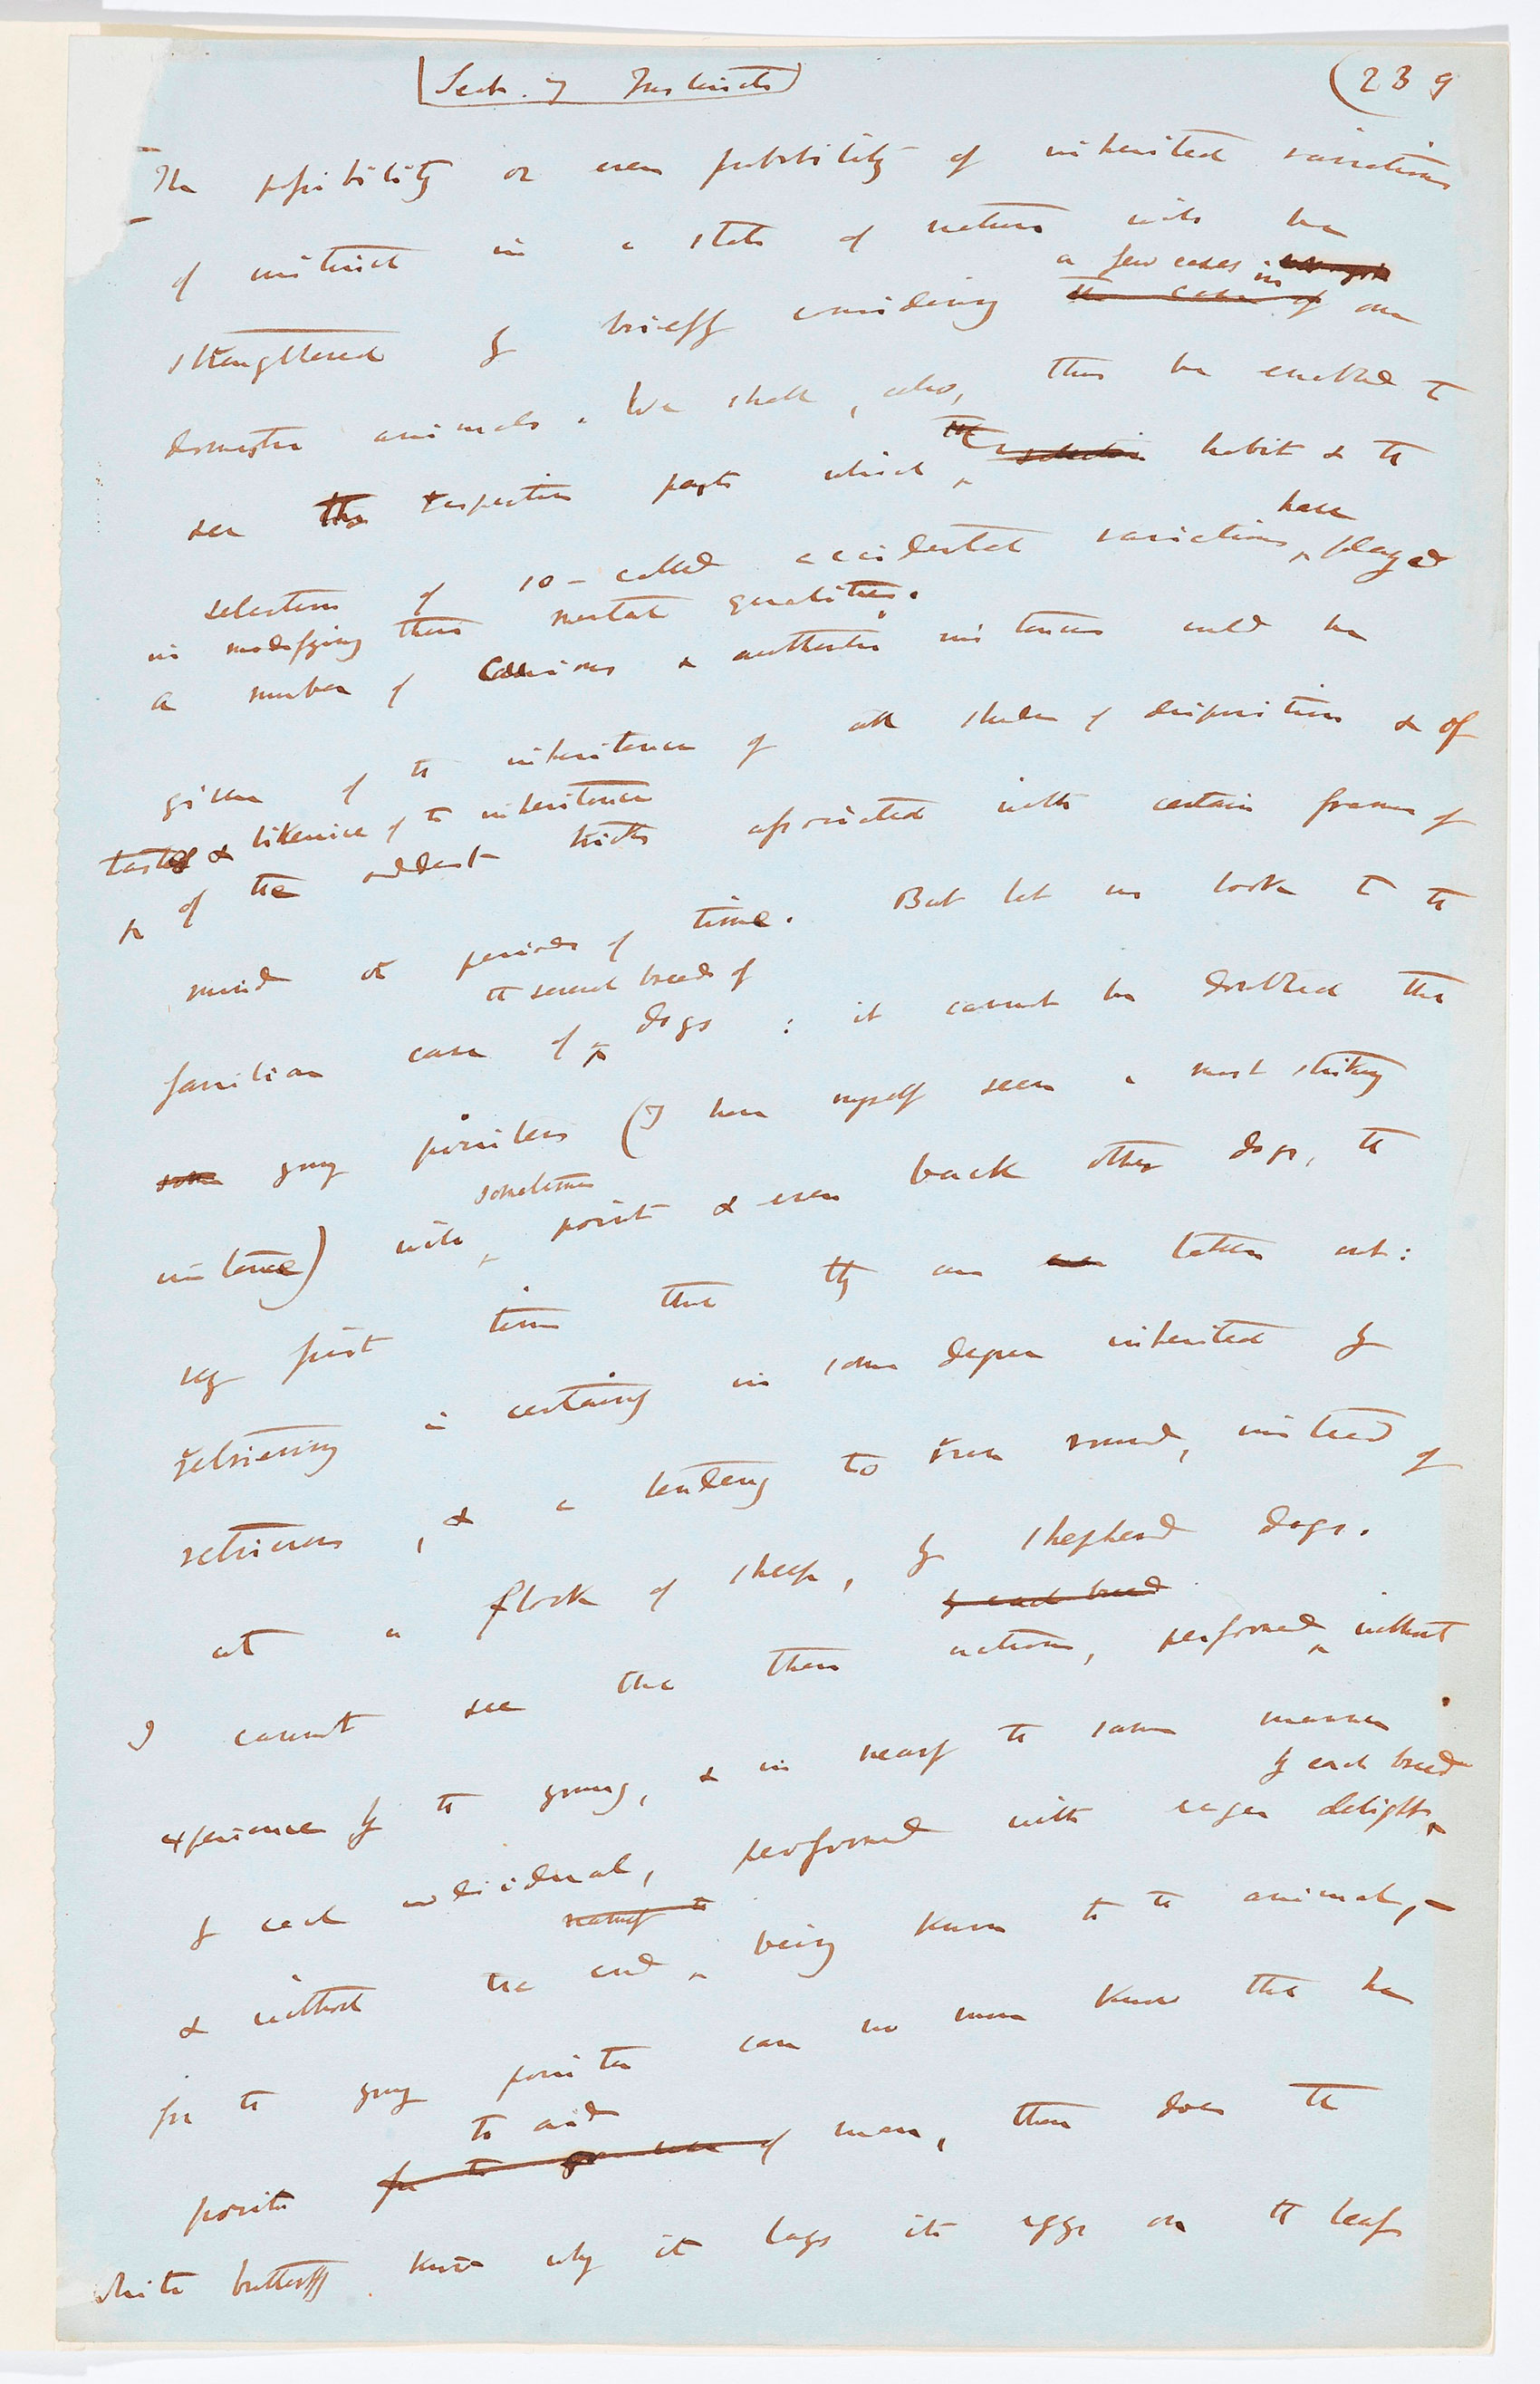 Sect. 7 Instincts
(239
The possibility or even probability of inherited variations
of instinct in a state of nature will be
a few cases in
strengthened by briefly considering the case of our
domestic animals. We shall, also, thus be enabled to
see the respective parts which selection habit & the
have
selection of so-called accidental variations played
in modifying these mental qualities.
A number of curious & authentic instances could be
given of the inheritance of all shades of disposition & of
tastes & likewise of the inheritance
of the oddest tricks associated with certain frames of
mind or periods of time. But let us look to the
the several breeds of
familiar case of dogs: it cannot be doubted that
some young pointers (I have myself seen a most striking
sometimes
instance) will point & even back other dogs, the
very first time that they are taken out:
retrieving is certainly in some degree inherited by
retrievers, & a tendency to run round, instead of
at a flock of sheep, by shepherd dogs.
by each breed
I cannot see that these actions, performed without
experience by the young, & in nearly the same manner
by each breed
by each individual, performed with eager delight
& without the end being known to the animal, —
for the young pointer can no more know that he
to aid
points for the use of man, than does the
white butterfly know why it lays its eggs on the leaf